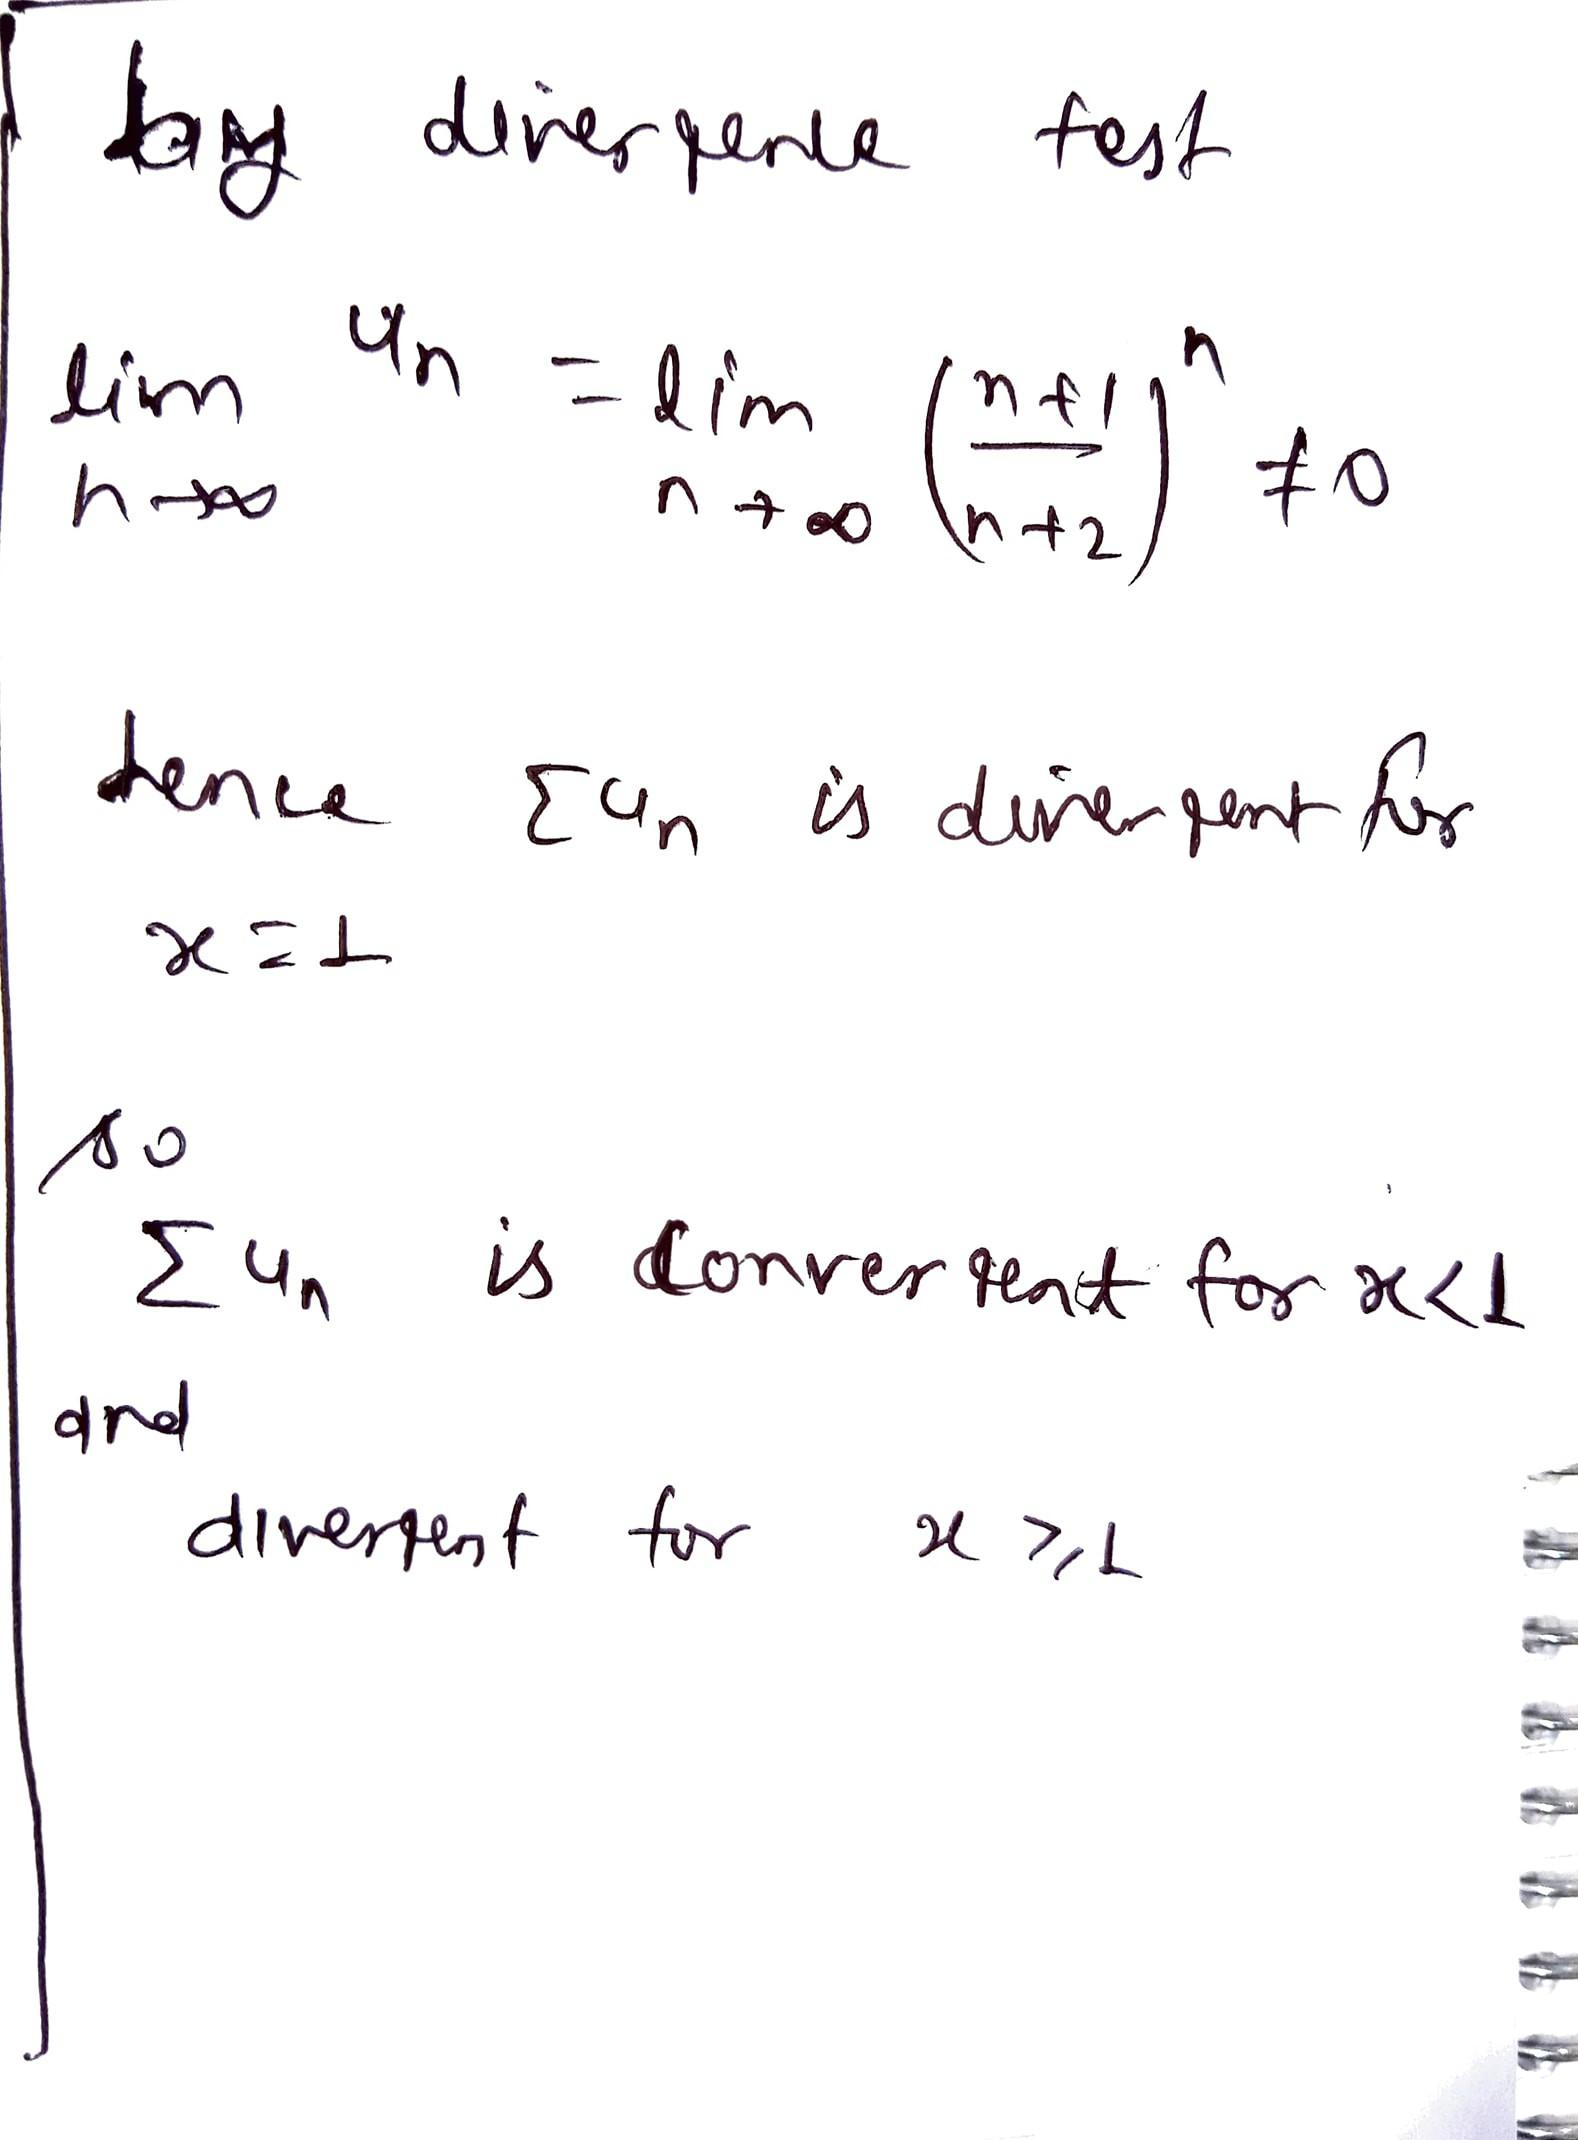 by divergence test
lim n→∞ un = lim n→∞ (n+1/n+2)^n ≠ 0
hence Σun is divergent for
x = 1
so
Σun is convergent for x<1
and
divergent for x ≥ 1